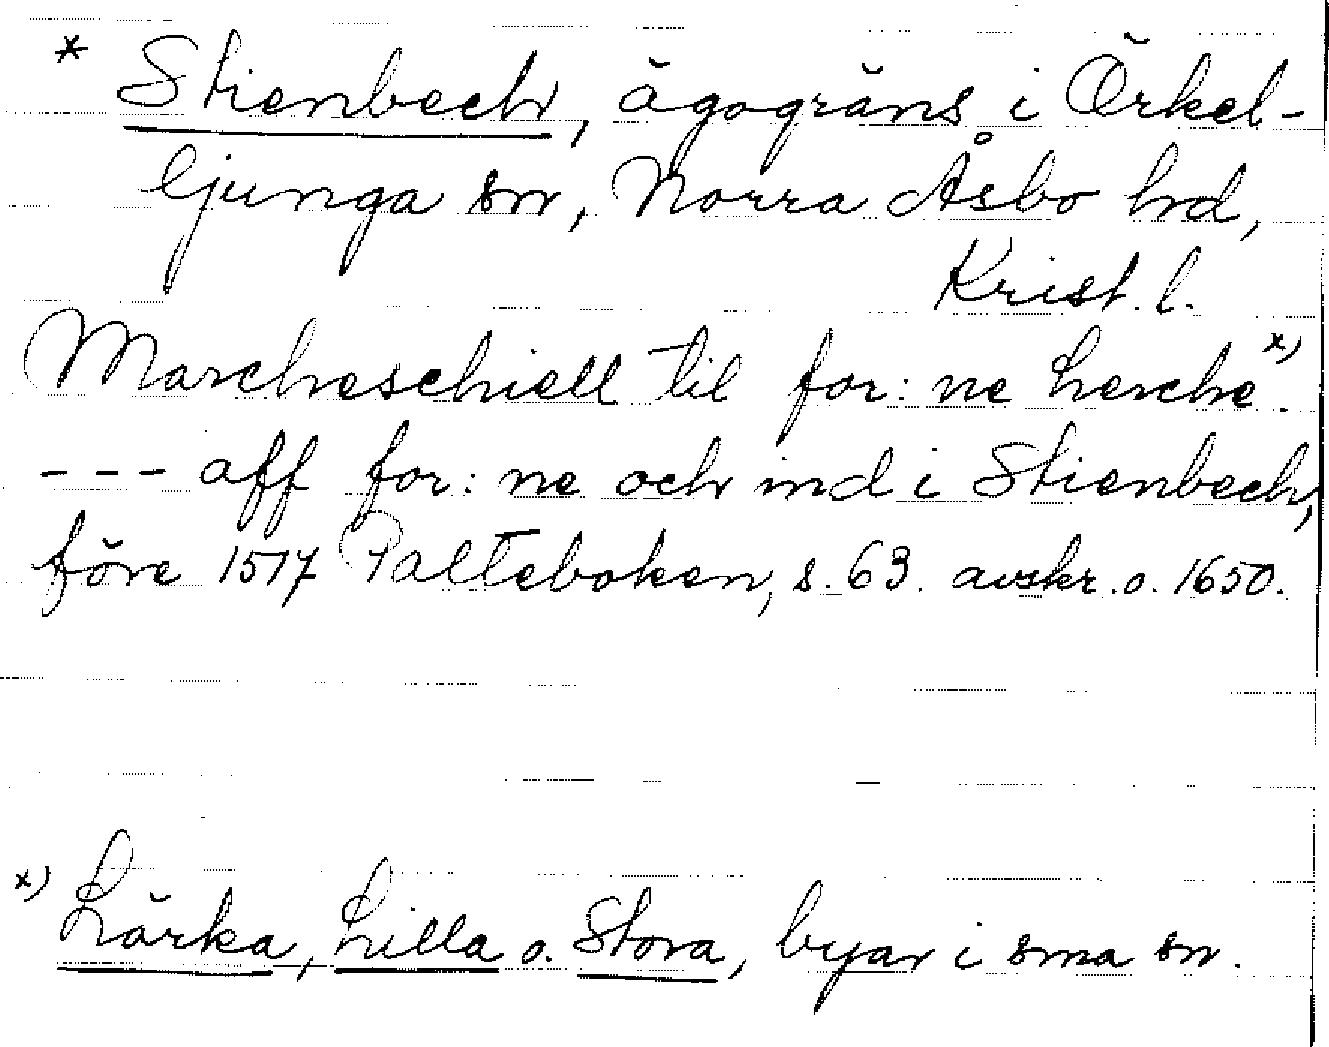 * Stienbech, ägogräns i Örkel-
ljunga sn, Norra Åsbo hd,
Krist. l.
Marcheschiell til for: ne Lerche x)
--- aff for: ne och ind i Stienbech,
före 1517 Palteboken, s. 63. avskr. o. 1650.
x) Lärka, Lilla o. Stora, byar i sma sn.